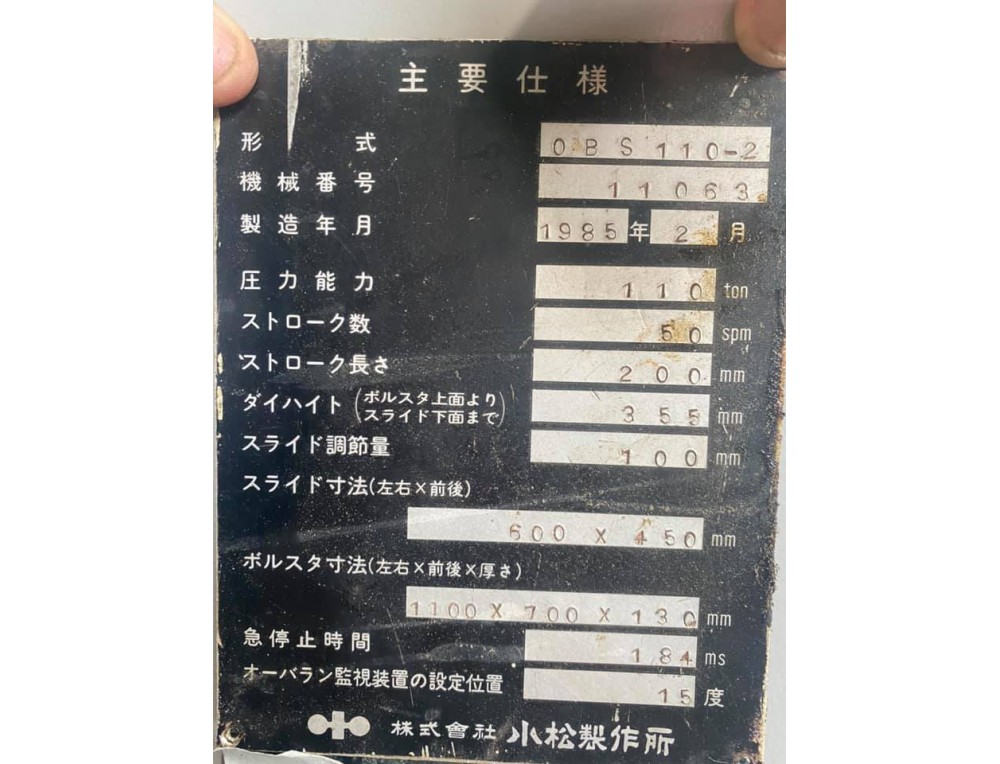 主要仕様
形式 OBS110-2
機械番号 11063
製造年月 1985年2月
圧力能力 110 ton
ストローク数 50 spm
ストローク長さ 200 mm
ダイハイト(ボルスタ上面より
スライド下面まで) 355 mm
スライド調節量 100 mm
スライド寸法(左右×前後)
600 X 450 mm
ボルスタ寸法(左右×前後×厚さ)
1100 X 700 X 130 mm
急停止時間 184 ms
オーバラン監視装置の設定位置 15 度
株式會社 小松製作所